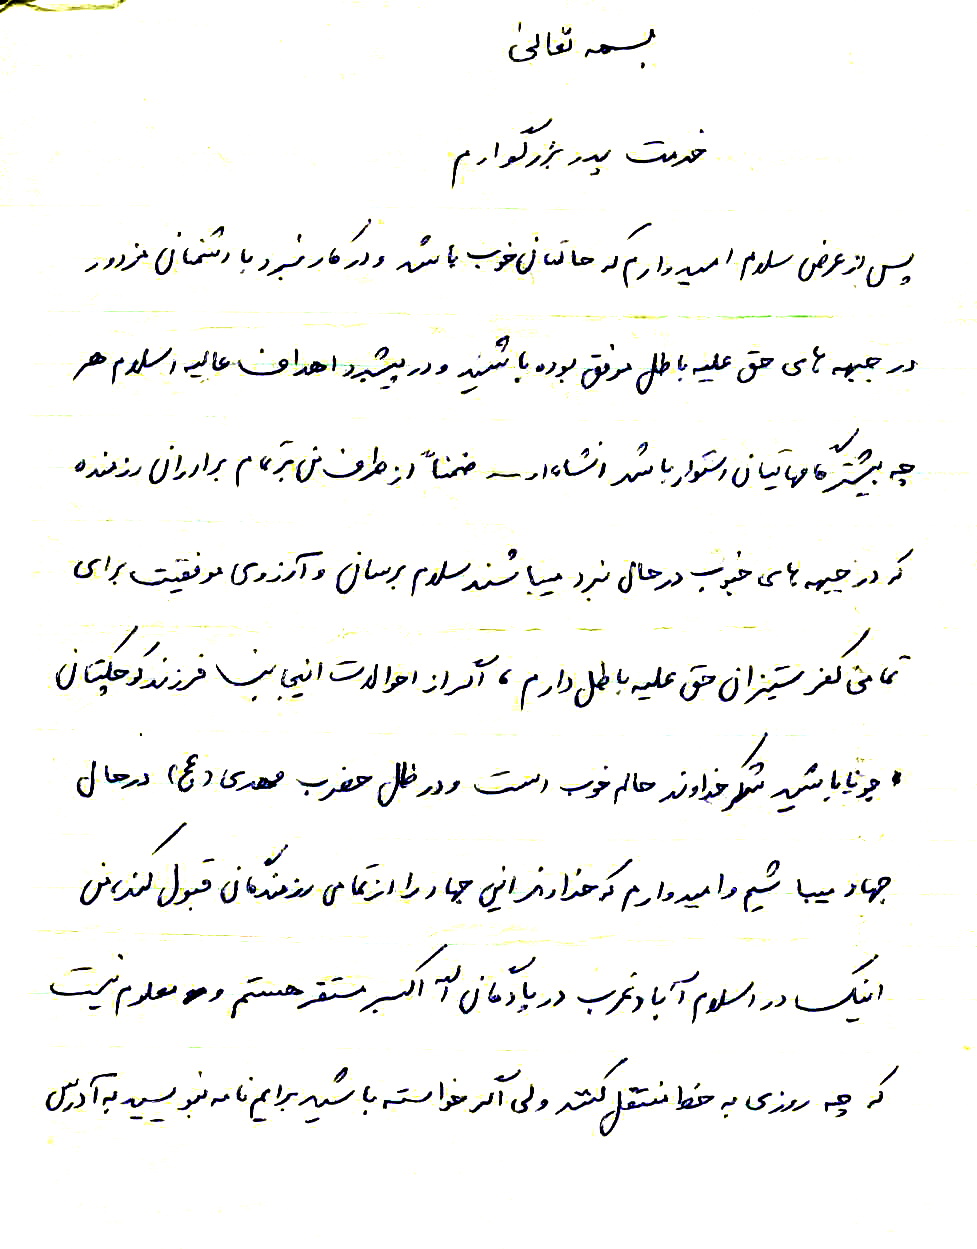 بسمه تعالی
خدمت پدر بزرگوارم
پس از عرض سلام امیدوارم که حالتان خوب باشد و در کار نبرد با دشمنان مزدور
در جبهه های حق علیه باطل موفق بوده باشید و در پیشبرد اهداف عالیه اسلام هر
چه بیشتر گامهایتان استوار باشد انشاءا... ضمناً از طرف من بر تمام برادران رزمنده
که در جبهه های جنوب در حال نبرد میباشند سلام برسان و آرزوی موفقیت برای
تمامی کفر ستیزان حق علیه باطل دارم ، اگر از احوالات اینجانب فرزند کوچکتان
جویا باشید شکر خداوند حالم خوب است و در ظل حضرت مهدی (عج) در حال
جهاد میباشیم و امیدوارم که خداوند این جهاد را از تمامی رزمندگان قبول کند، من
اینک در اسلام آباد غرب در پادگان الله اکبر مستقر هستم و معلوم نیست
که چه روزی به خط منتقل کنند ولی اگر خواسته باشید برایم نامه بنویسید به آدرس